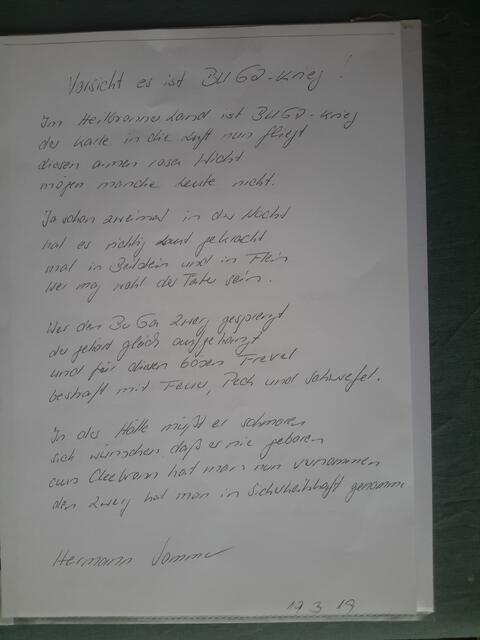 Vorsicht es ist BUGA-Krieg!
Im Heilbronner Land ist BUGA-Krieg
der Karle in die Luft nun fliegt
diesen armen rosa Wicht
mögen manche Leute nicht.
Ja schon zweimal in der Nacht
hat es richtig laut gekracht
mal in Beilstein und in Flein
wer mag wohl der Täter sein.
Wer den BuGa Zwerg gesprengt
der gehört gleich
und für diesen bösen Frevel
bestraft mit Feuer, Pech und Schwefel.
In der Hölle müßt er schmoren
sich wünschen daß er nie geboren
aus Cleebronn hat man nun vernommen
den Zwerg hat man in Sicherheitshaft genomme
Hermann
19 3 19